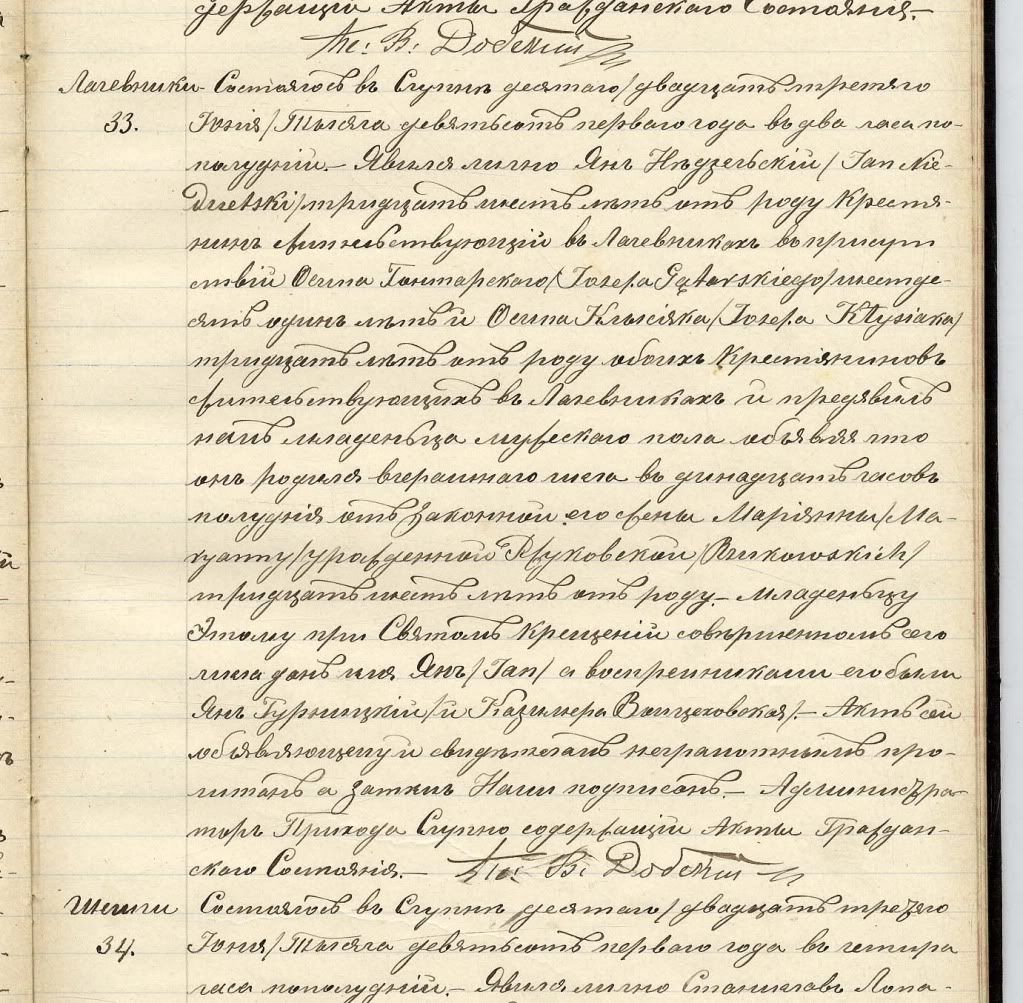 держащій Акты Гражданскаго Состоянія.-
Кс: В:
Лачевники
33.
Состоялось въ Слупнѣ десятаго/двадцать третяго
Іюня/Тысяча девятьсотъ перваго года въ два часа по-
полудній.- Явился лично Янъ Нѣдзельскій/Jan Nie-
dzielski/тридцать шесть лѣтъ отъ роду Крестя-
нинъ жительствующій въ Лачевникахъ въ присут
ствіи Осипа Гонтарскаго/Józefa Gątarskiego/шестде-
сятъ одинъ лѣтъ и Осипа Клысіяка/Józefa Kłysiaka/
тридцать лѣтъ отъ роду обоихъ Крестяниновъ
жительствующихъ въ Лачевникахъ и предявилъ
намъ младеньца мужескаго пола объявля что
онъ родился вчерашнаго числа въ динадцать часовъ
полудня отъ законной его жены Маріянны/Ma-
ryanny/урожденной Ржуковской/Rzukowskich/
тридцать шесть лѣтъ отъ роду.- Младеньцу
Этому при Святомъ Крещеніи совѣршенномъ сего
числа данъ имя Янъ/Jan/ а воспреиниками его были
Янъ Гурницкій/и Казимера Войцеховская/.- Актъ сей
объявляющему и свидѣтелямъ неграмотнымъ про-
читанъ а затимъ Нами подписанъ.- Администра-
торъ Прихода Слупно содержащій Акты Граждан-
скаго Состоянія.- Кс: В:
34.
Состоялось въ Слупнѣ десятаго/двадцать третяго
Іюня/Тысяча девятьсотъ перваго года въ четыра
часа пополудній.- Явился лично Станиславъ Лопа-